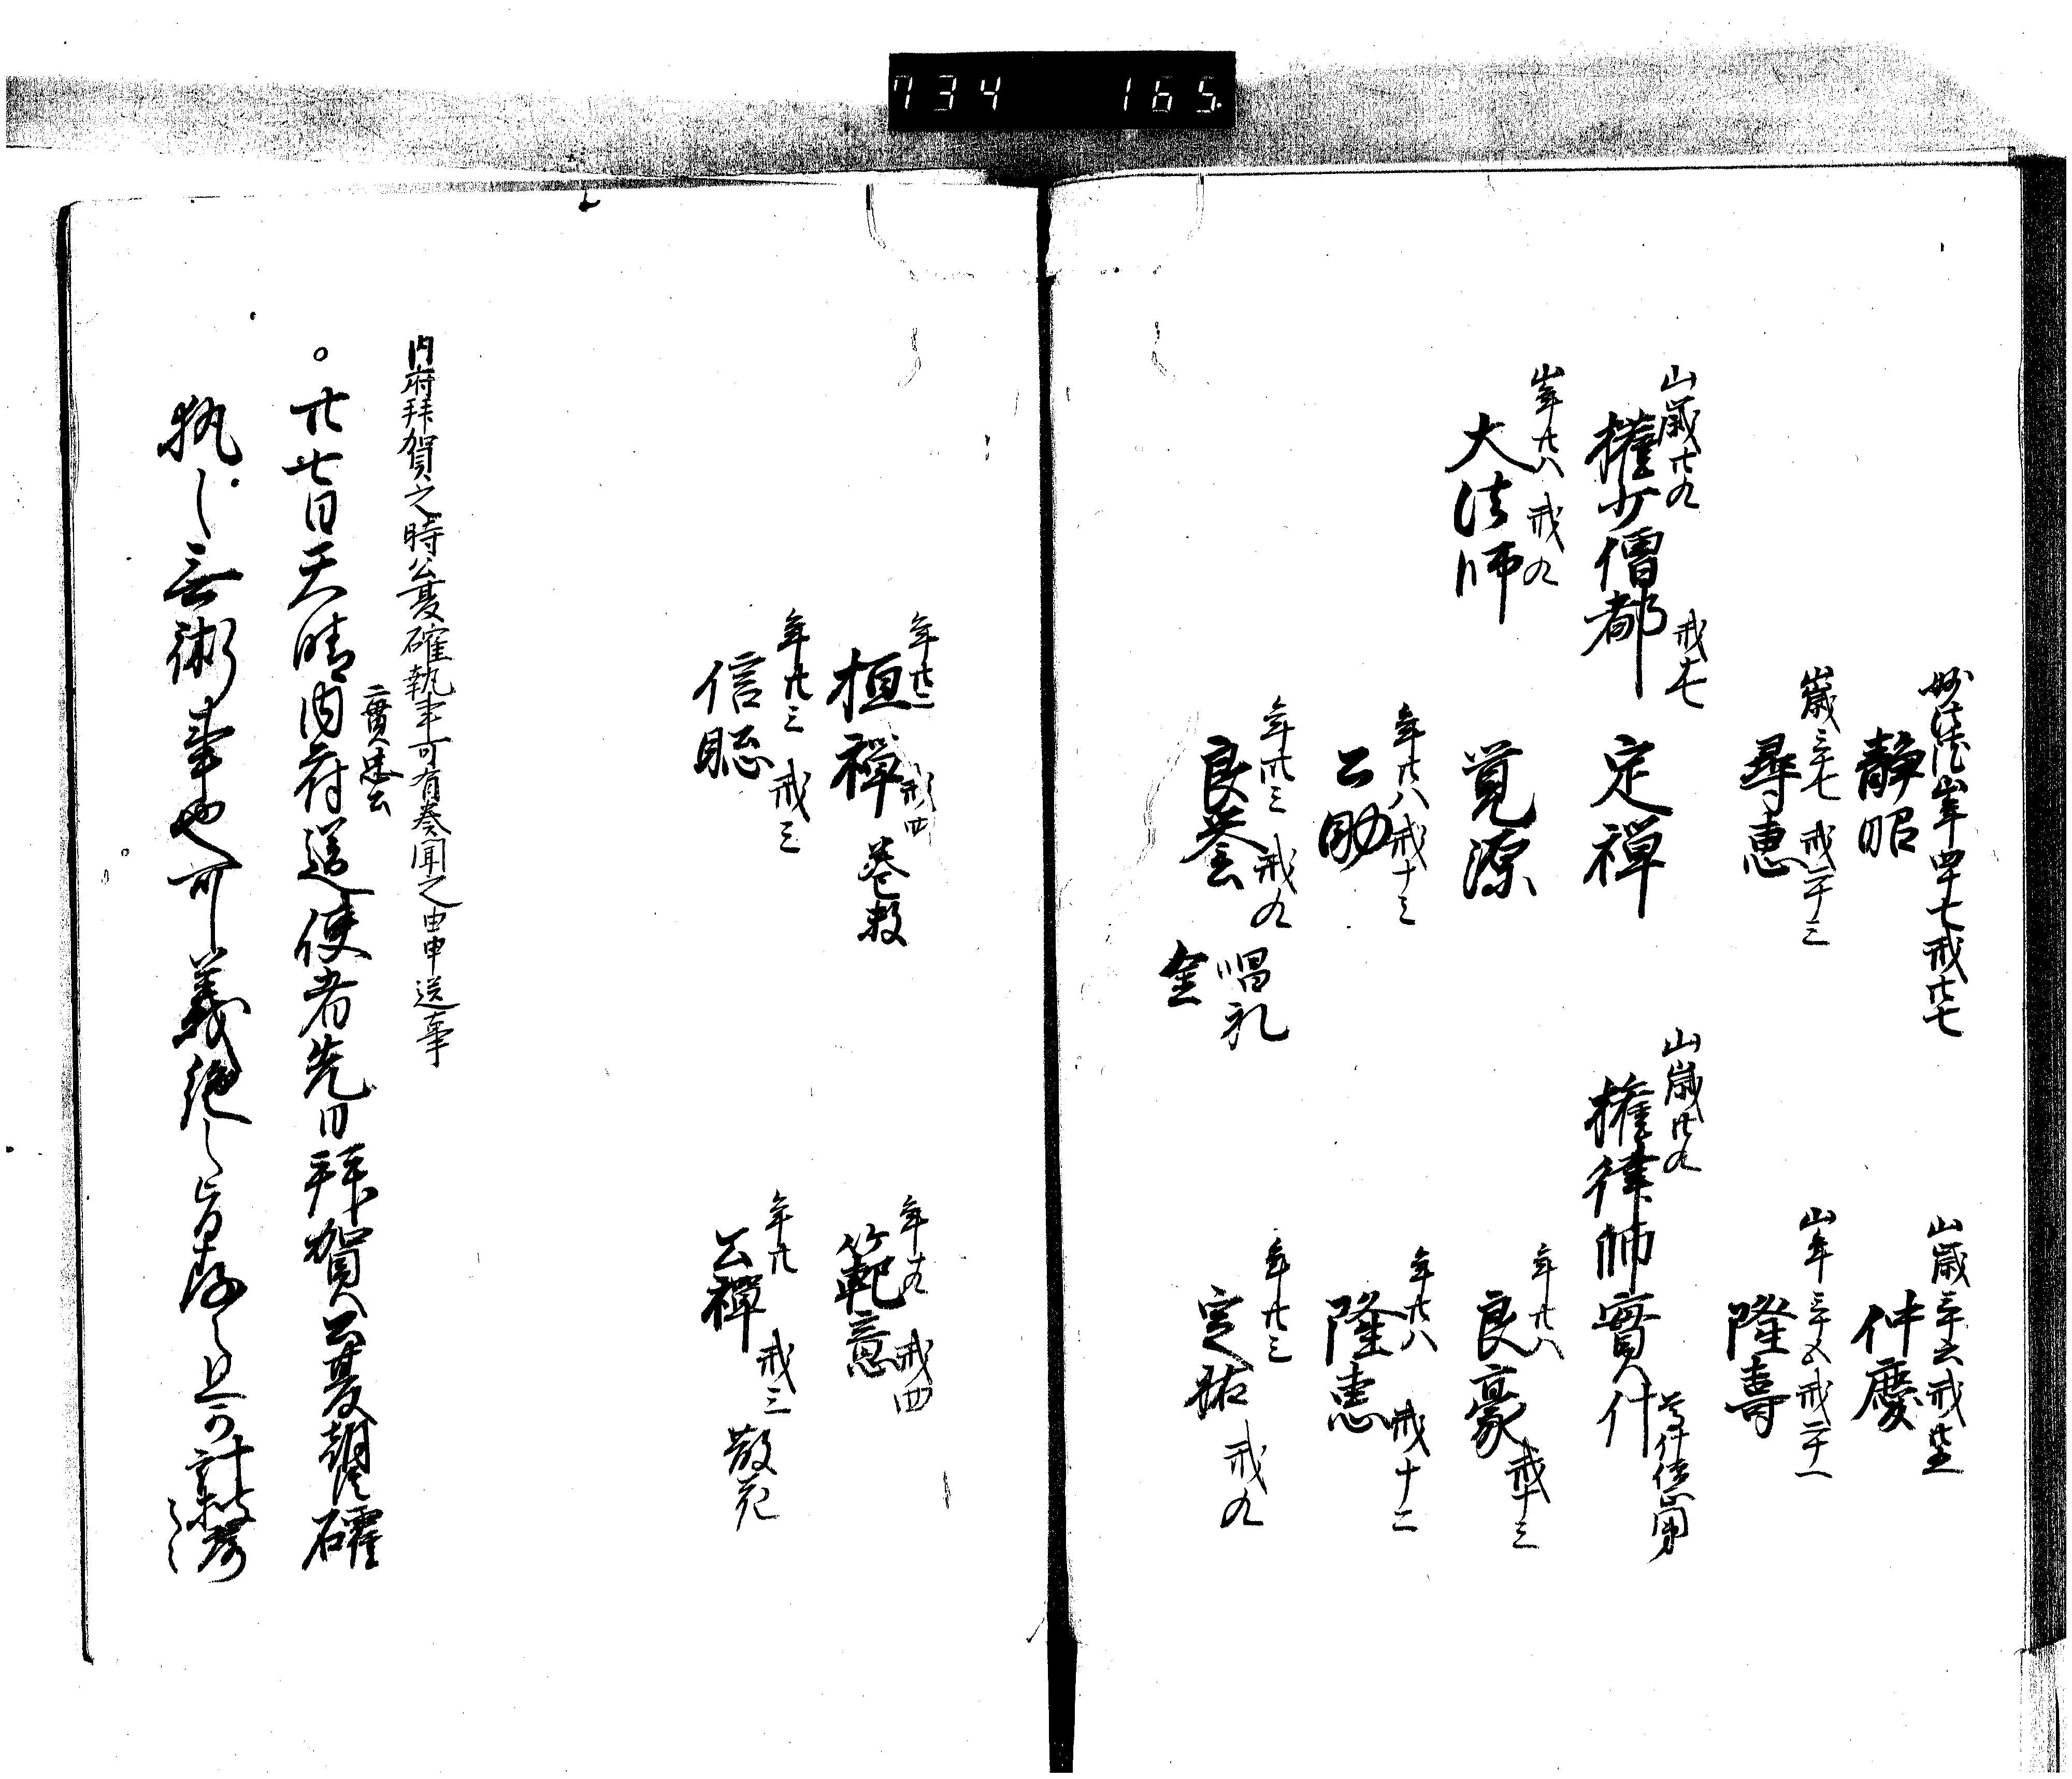 734 165
妙法院 山 年四十七 戒廿七
静昭
山 歳三十六 戒廿五
仲慶
山 歳三十七 戒二十三
尋恵
山 年三十五 戒二十一
隆壽
山 歳廿九 戒十七
権少僧都 定禅
山 歳廿九
権律師實什
山 年廿八 戒九
大法師 覚源
年廿八 戒十三
良豪
年廿八 戒十三
公助
年廿八 戒十二
隆恵
年廿三 戒九
良誉 唱礼
金
年廿三 戒九
定祐
年廿二 戒四
桓禅 巻数
年十九 戒四
範意
年廿三 戒三
信聡
年廿 戒三
公禅 散花
内府拝賀之時公夏確執事可有奏聞之由申送事
実忠云
○廿七日天晴内府送使者先日拝賀公夏朝臣確
執之無術事也可義絶之旨存之且可計披露
云々